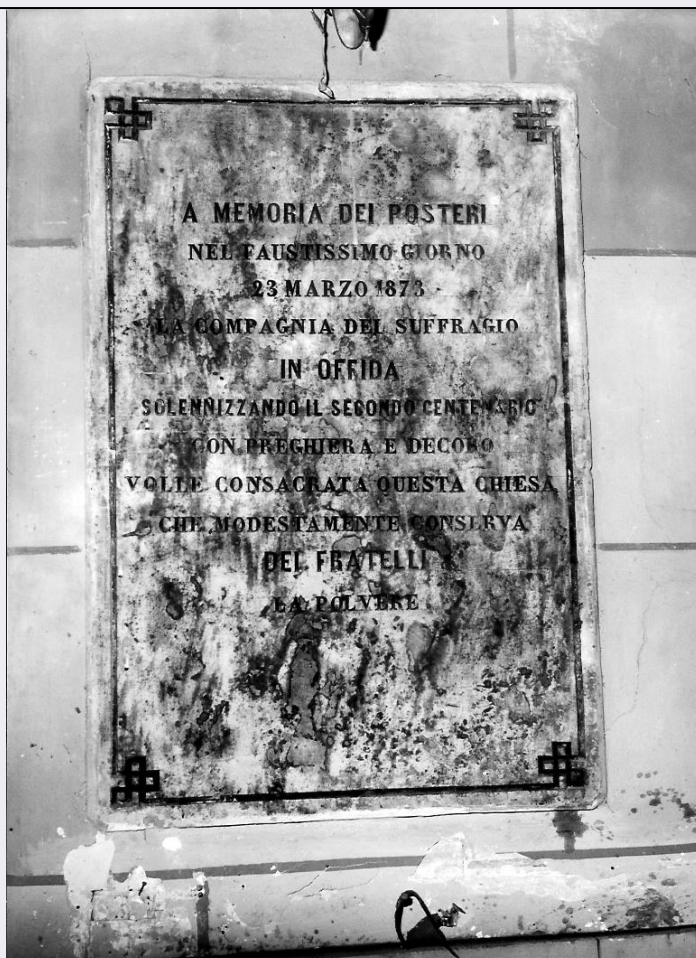 A MEMORIA DEI POSTERI
NEL FAUSTISSIMO GIORNO
23 MARZO 1873
LA COMPAGNIA DEL SUFFRAGIO
IN OFFIDA
SOLENNIZZANDO IL SECONDO CENTENARIO
CON PREGHIERA E DECORO
VOLLE CONSACRATA QUESTA CHIESA
CHE MODESTAMENTE CONSERVA
DEI FRATELLI
LA POLVERE